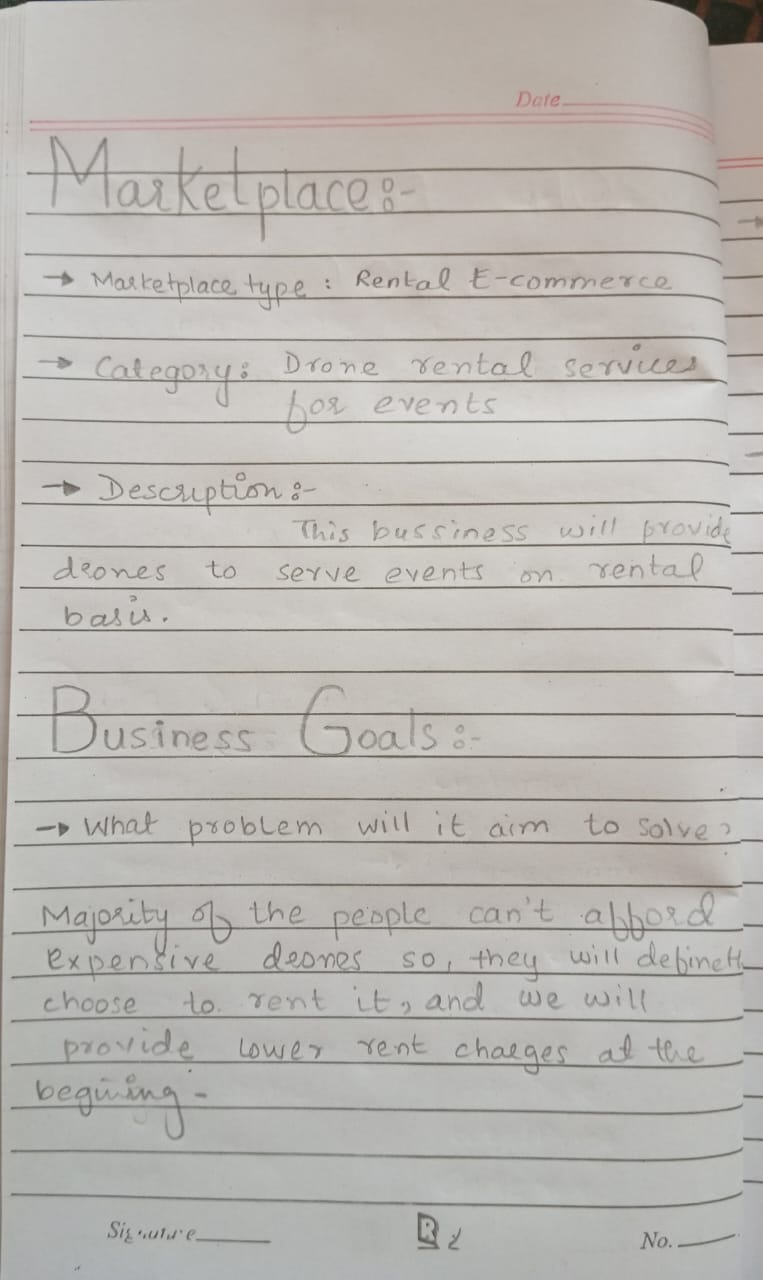 Date
Marketplace:-
→ Marketplace type : Rental E-commerce
→ Category: Drone rental services
for events
→ Description:-
This bussiness will provide
drones to serve events on rental
basis.
Business Goals:-
→ What problem will it aim to solve?
Majority of the people can't afford
expensive drones so, they will
choose to rent it, and we will
provide lower rent charges at the
begining-
Signature
R
No.